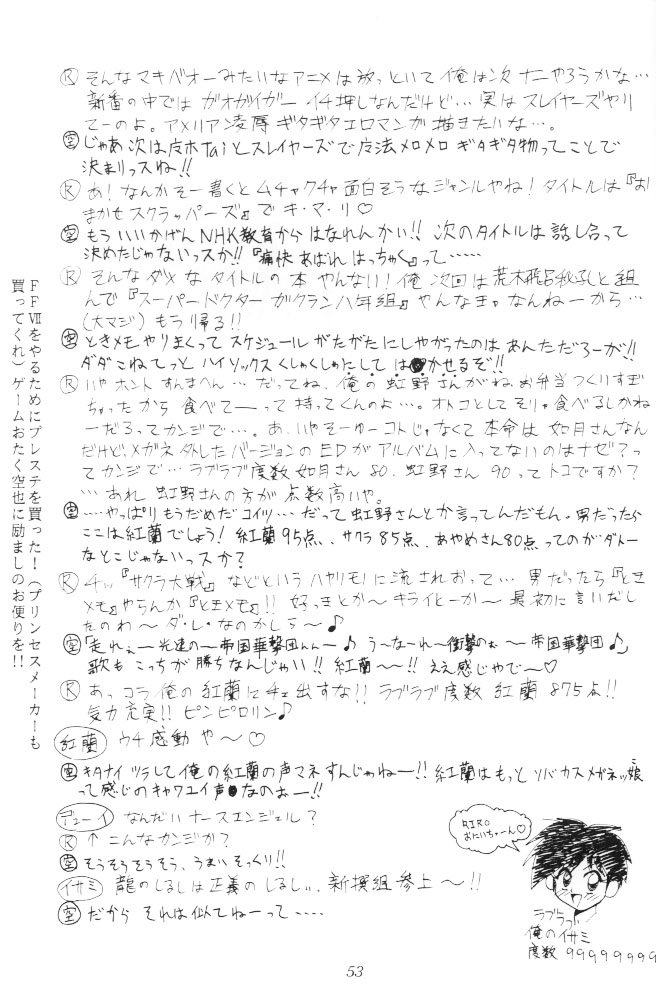 Ⓡ そんなマキバオーみたいなアニメは放っといて 俺は次 ナニやろうかな…
新番の中では ガオガイガー イチ押しなんだけど… 実は スレイヤーズやり
てーのよ。アメリアン凌辱 ギタギタエロマンが 描きたいな…。
空 じゃあ 次は 皮ホTaiとスレイヤーズで 魔法メロメロ ギタギタ物ってことで
決まりっスね!!
Ⓡ あ! なんかそー書くと ムチャクチャ 面白そうな ジャンルやね! タイトルは『お
まかせスクラッパーズ』で キ・マ・リ♡
空 もう いいかげん NHK教育から はなれんかい!! 次のタイトルは 話し合って
決めたじゃないっスか!!『痛快 あばれ はっちゃく』って……
Ⓡ そんな ダメな タイトルの 本 やんない! 俺 次回は 荒木飛呂秋孔と 組
んで『スーパードクター がクラン八年組』 やんなきゃ なんねーから…
(大マジ) もう帰る!!
空 ときメモ やりまくって スケジュール がたがたにしやがったのは あんただろーが!!
ダダ こねてっと ハイソックス くしゃくしゃにして はかせるぞ!!
Ⓡ いや ホント すんまへん… だってね、俺の 虹野さんがね お弁当つくりすぎ
ちゃったから 食べてーって 持ってくんのよ…。オトコとして そりゃ食べるしかね
ーだろってカンジで…。あ、いや そーゆーコトじゃなくて 本命は 如月さんなん
だけど、メガネ外したバージョンの EDが アルバムに 入ってないのは ナゼ?っ
てカンジで… ラブラブ度数 如月さん 80、虹野さん 90 ってトコですか?
… あれ 虹野さんの方が 点数高いや。
空 …やっぱり もうだめだ コイツ… だって 虹野さんとか言ってんだもん。男だったら
ここは 紅蘭でしょう! 紅蘭95点、サクラ85点、あやめさん80点 ってのが ダトー
なとこじゃないっスか?
Ⓡ チィ『サクラ大戦』などという ハヤリモノに 流されおって… 男だったら『とき
メモ』やらんか『ときメモ』!! 好っきとか〜 キライとーか〜 最初に 言いだし
たのわ〜 ダ・レ・なのかしら〜♪
空 「走れぇー 光速の〜 帝国華撃団んん〜♪ う〜な〜れ〜 衝撃のぉ〜 帝国華撃団♪」
歌も こっちが 勝ちなんじゃい!! 紅蘭〜〜!! ええ感じやで〜♡
Ⓡ あっ コラ 俺の 紅蘭に チェ 出すな!! ラブラブ度数 紅蘭 875点!!
気力充実!! ピンピロリン♪
紅蘭 ウチ 感動 や〜♡
空 キタナイ ツラして 俺の紅蘭の 声マネ すんじゃねー!! 紅蘭は もっと ソバカスメガネッ娘
って感じの キャワエイ声なのぉー!!
デューイ なんだい ナースエンジェル?
Ⓡ ↑ こんな カンジか?
空 そうそうそうそう、うまい そっくり!!
イサミ 龍のしるしは 正義の しるしぃ、新撰組 参上〜!!
空 だから それは似てねーって……
RIRO
おたいちゃーん♡
ラブラブ
俺の イサミ
度数 99999999
FFⅦをやるためにプレステを買った!(プリンセスメーカーも
買ってくれ)ゲームおたく空也に励ましのお便りを!!
53